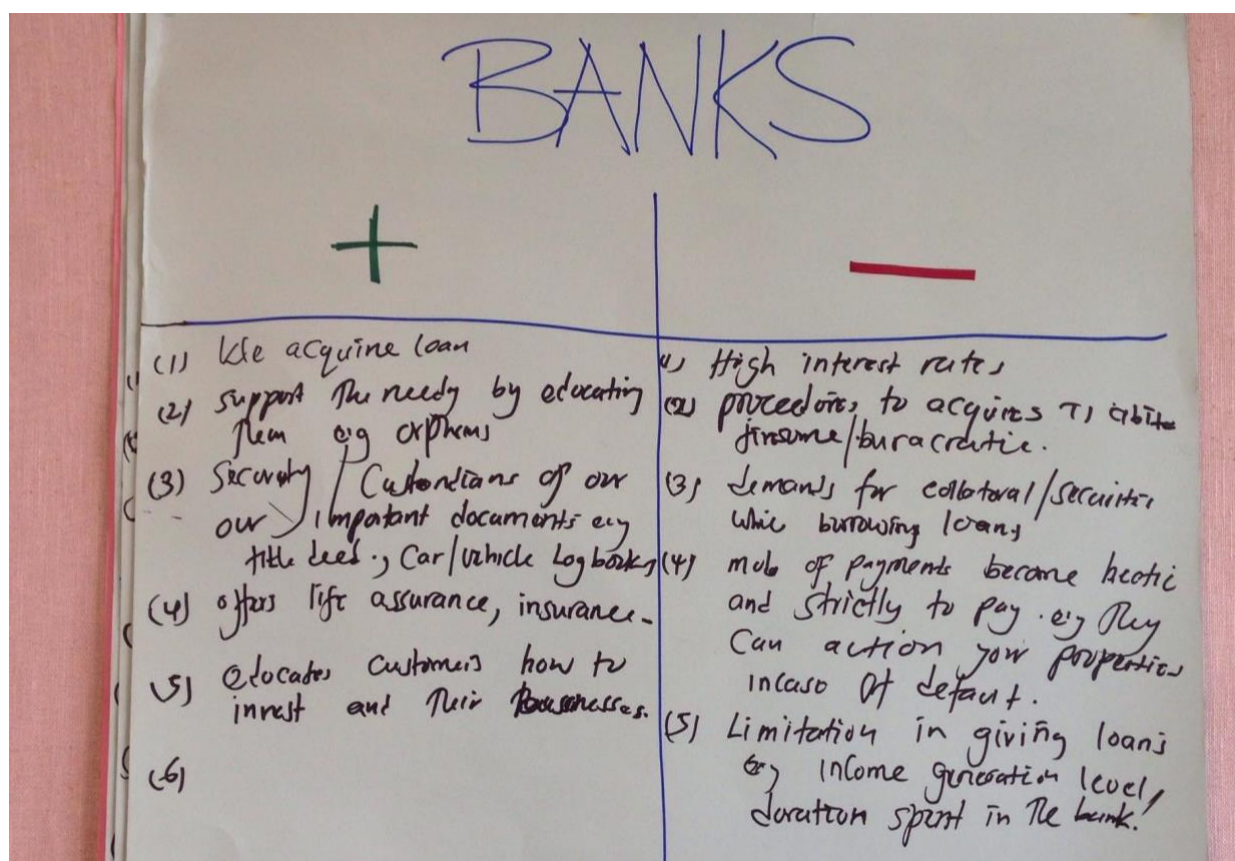 BANKS
+
−
(1) We acquire loan
(2) support the needy by educating
them e.g orphans
(3) Security / Custondians of our
our important documents e.g
title deed., Car/vehicle Log books
(4) offers life assurance, insurance.
(5) Educates customers how to
invest and their Bussinesses.
(6)
(1) High interest rates
(2) procedures to acquires is
/buracratic.
(3) demands for collatoral/securities
while burrowing loans
(4) of payments become hectic
and strictly to pay. e.g They
can action your properties
incase of default.
(5) Limitation in giving loans
e.g income generation level,
duration spent in the bank.